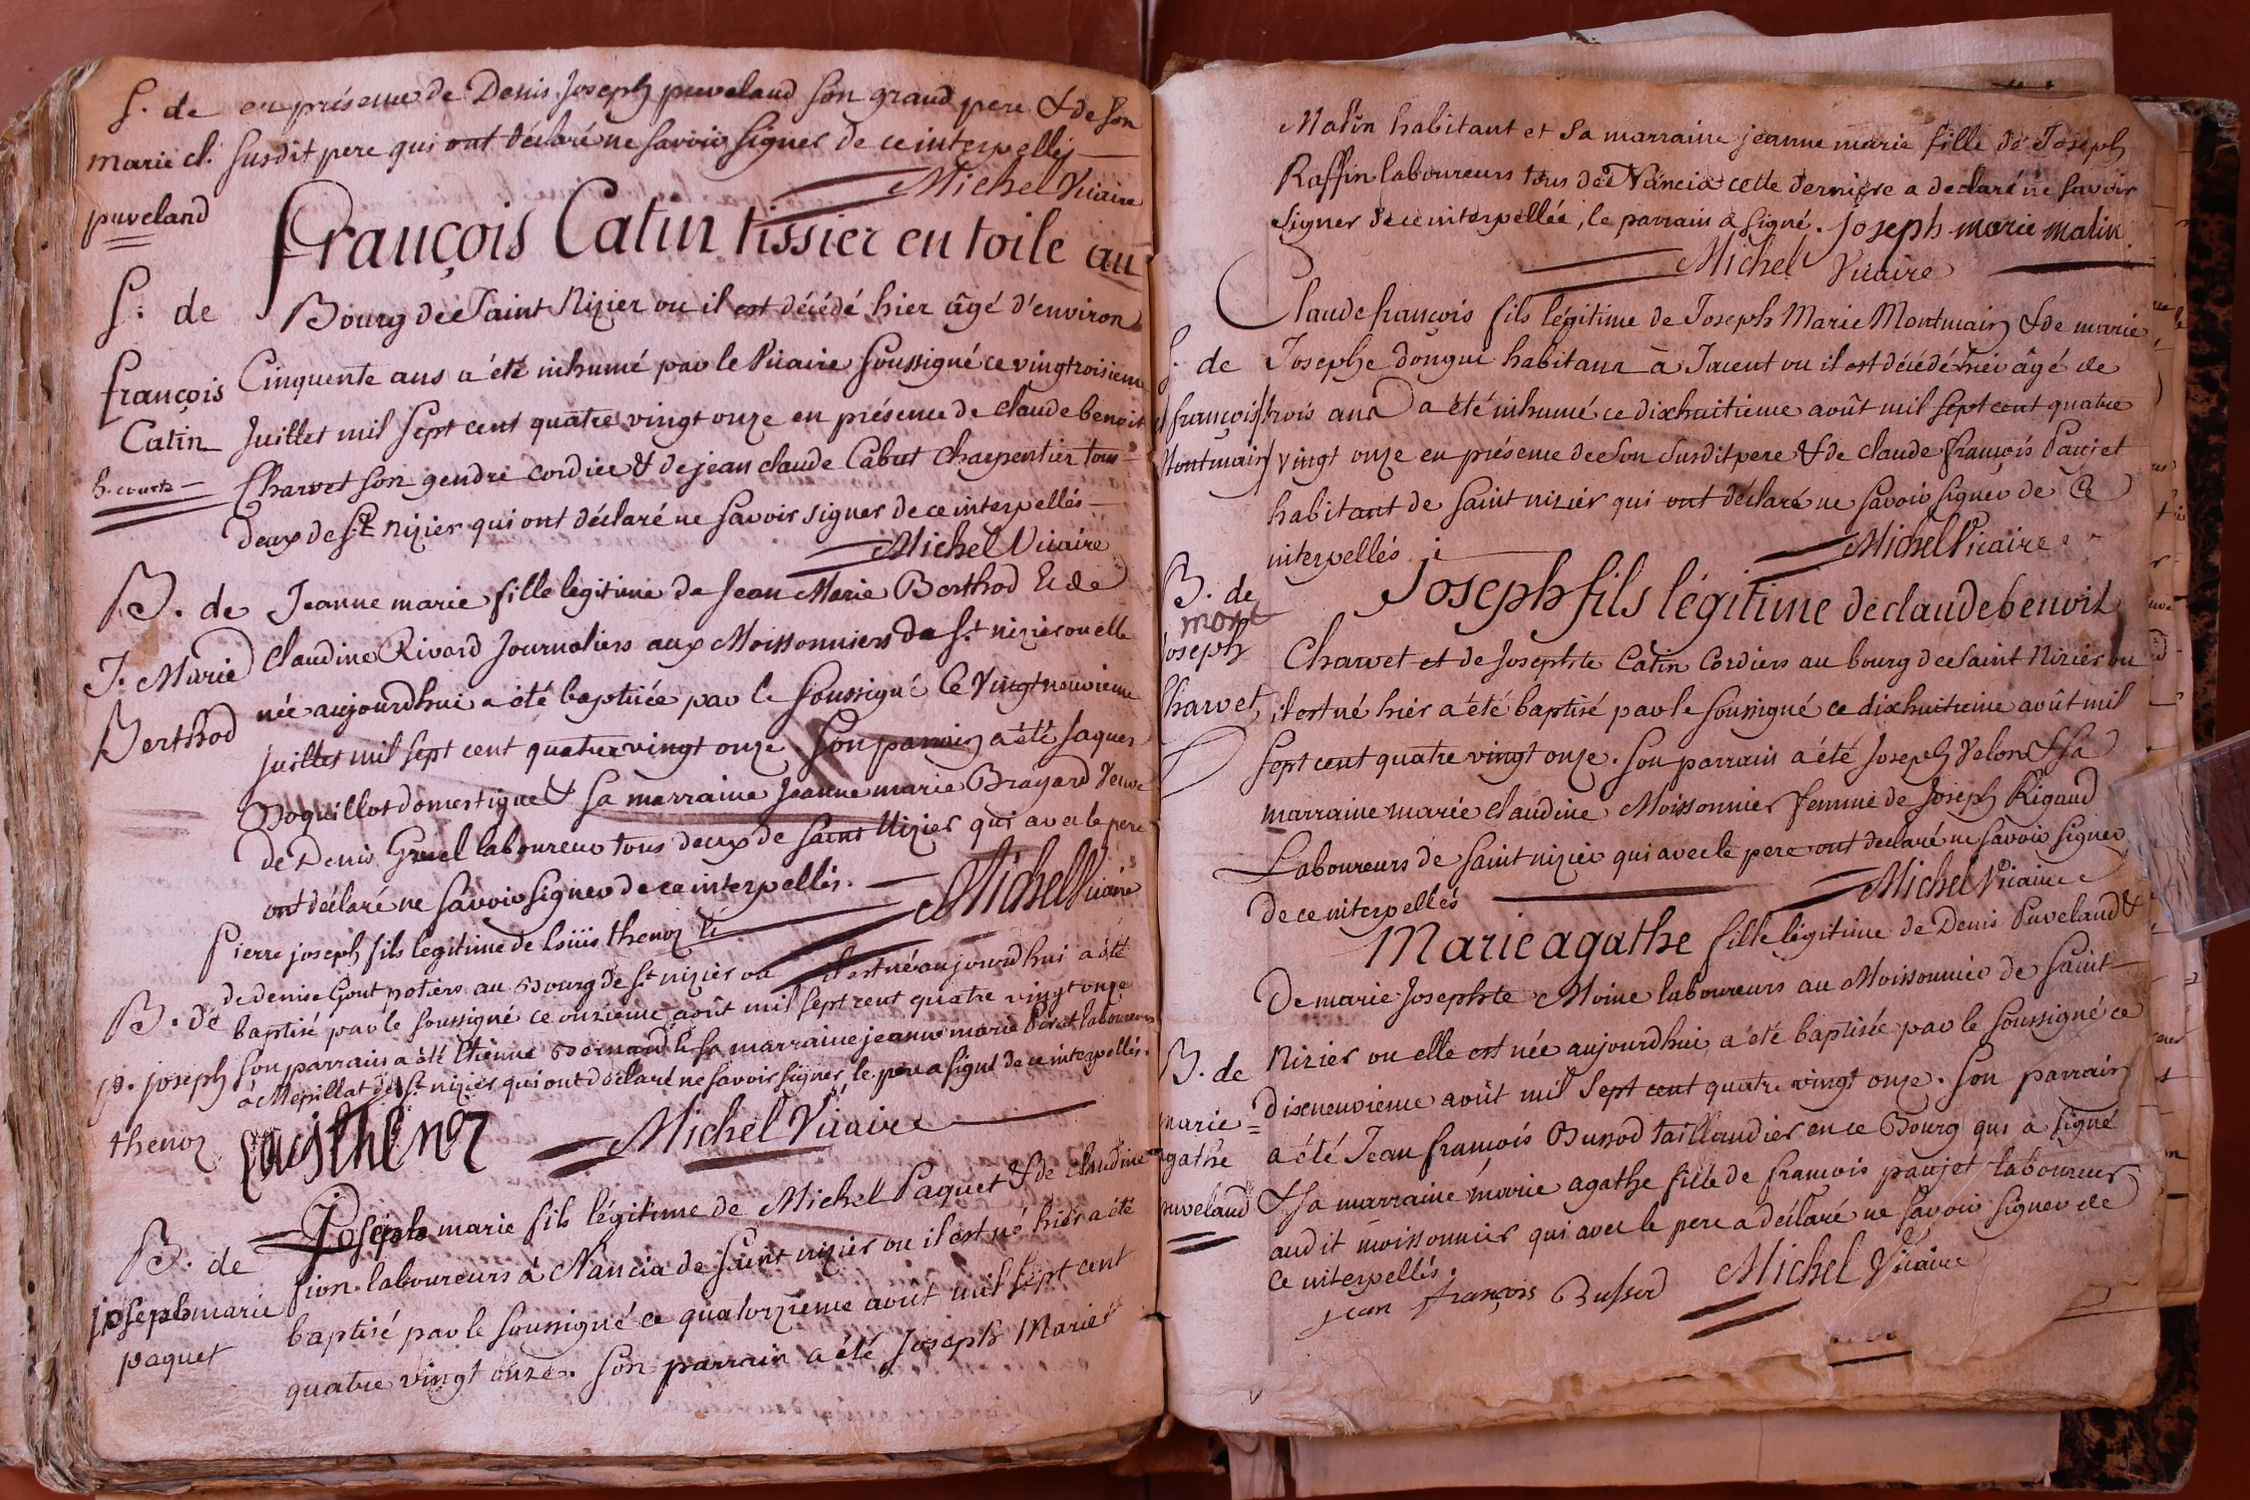 S. de en présence de Denis Joseph puveland son grand pere & de son
marie cl. susdit pere qui ont déclaré ne savoir signer de ce interpellés
Michel Vicaire
puveland
françois Catin tissier en toile au
S. de Bourg de Saint Nizier ou il est décédé hier âgé d'environ
françois Cinquente ans a été inhumé par le Vicaire soussigné ce vingtroisieme
Catin Juillet mil sept cent quatre vingt onze en présence de claude benoit
Charvet son gendre cordier & de jean claude Cabut Charpentier tous
deux de St Nizier qui ont déclaré ne savoir signer de ce interpellés
Michel Vicaire
B. de Jeanne marie fille legitime de Jean Marie Berthod & de
J. Marie Claudine Rivard Journaliers aux Moissonniers de St nizier ou elle
Berthod née aujourdhui a été baptisée par le soussigné ce Vingtneuvieme
juillet mil sept cent quatrevingt onze. Son parrain a été Jaques
Boquillot domestique & sa marraine Jeanne marie Brayard veuve
de Denis Gruel laboureur tous deux de Saint Nizier qui avec le pere
ont déclaré ne savoir signer de ce interpellés.
Michel Vicaire
Pierre joseph fils legitime de loüis thenoz &
de denise Gout potiers au Bourg de St nizier ou il est né aujourdhui a été
B. de baptisé par le soussigné ce onzieme août mil sept cent quatre vingt onze
p. joseph son parrain a été Etienne Bernard & sa marraine jeanne marie laboureurs
à Mepillat de St nizier qui ont déclaré ne savoir signer, le pere a signé de ce interpellés.
thenoz Louis thenoz
Michel Vicaire
B. de Joseph marie fils légitime de Michel Paquet & de Claudine
josephmarie fion laboureurs à Nancia de Saint nizier ou il est né hier a été
paquet baptisé par le soussigné ce quatorzieme août mil sept cent
quatre vingt onze. Son parrain a été Joseph Marie
Matin habitant et sa marraine jeanne marie fille de Joseph
Raffin laboureurs tous de Nancia cette derniere a declaré ne savoir
signer de ce interpellée, le parrain a signé. joseph marie matin
Michel Vicaire
Claude françois fils légitime de Joseph Marie Montmain & de marie
S. de Josephe dongui habitans à Juent ou il est décédé hier âgé de
françois trois ans a été inhumé ce dixhuitieme août mil sept cent quatre
Montmain vingt onze en présence de son susdit pere & de claude françois Paujet
habitant de Saint nizier qui ont déclaré ne savoir signer de ce
interpellés
Michel Vicaire
B. de Joseph fils légitime de claude benoit
mort
joseph Charvet et de Josephte Catin Cordiers au bourg de Saint Nizier ou
Charvet il est né hier a été baptisé par le soussigné ce dixhuitieme août mil
sept cent quatre vingt onze. Son parrain a été Joseph Velon & sa
marraine marie claudine Moissonnier femme de Joseph Rigaud
Laboureurs de Saint nizier qui avec le pere ont declaré ne savoir signer
de ce interpellés
Michel Vicaire
Marie agathe fille légitime de Denis Puveland &
De marie Josephte Moine laboureurs au Moissonnier de Saint
B. de Nizier ou elle est née aujourdhui, a été baptisée par le soussigné ce
dixneuvieme août mil sept cent quatre vingt onze. Son parrain
marie= a été Jean françois Bussod taillandier en ce Bourg qui a signé
agathe & sa marraine marie agathe fille de francois paujet laboureur
puveland audit moissonnier qui avec le pere a déclaré ne savoir signer de
ce interpellés.
jean françois Bussod Michel Vicaire